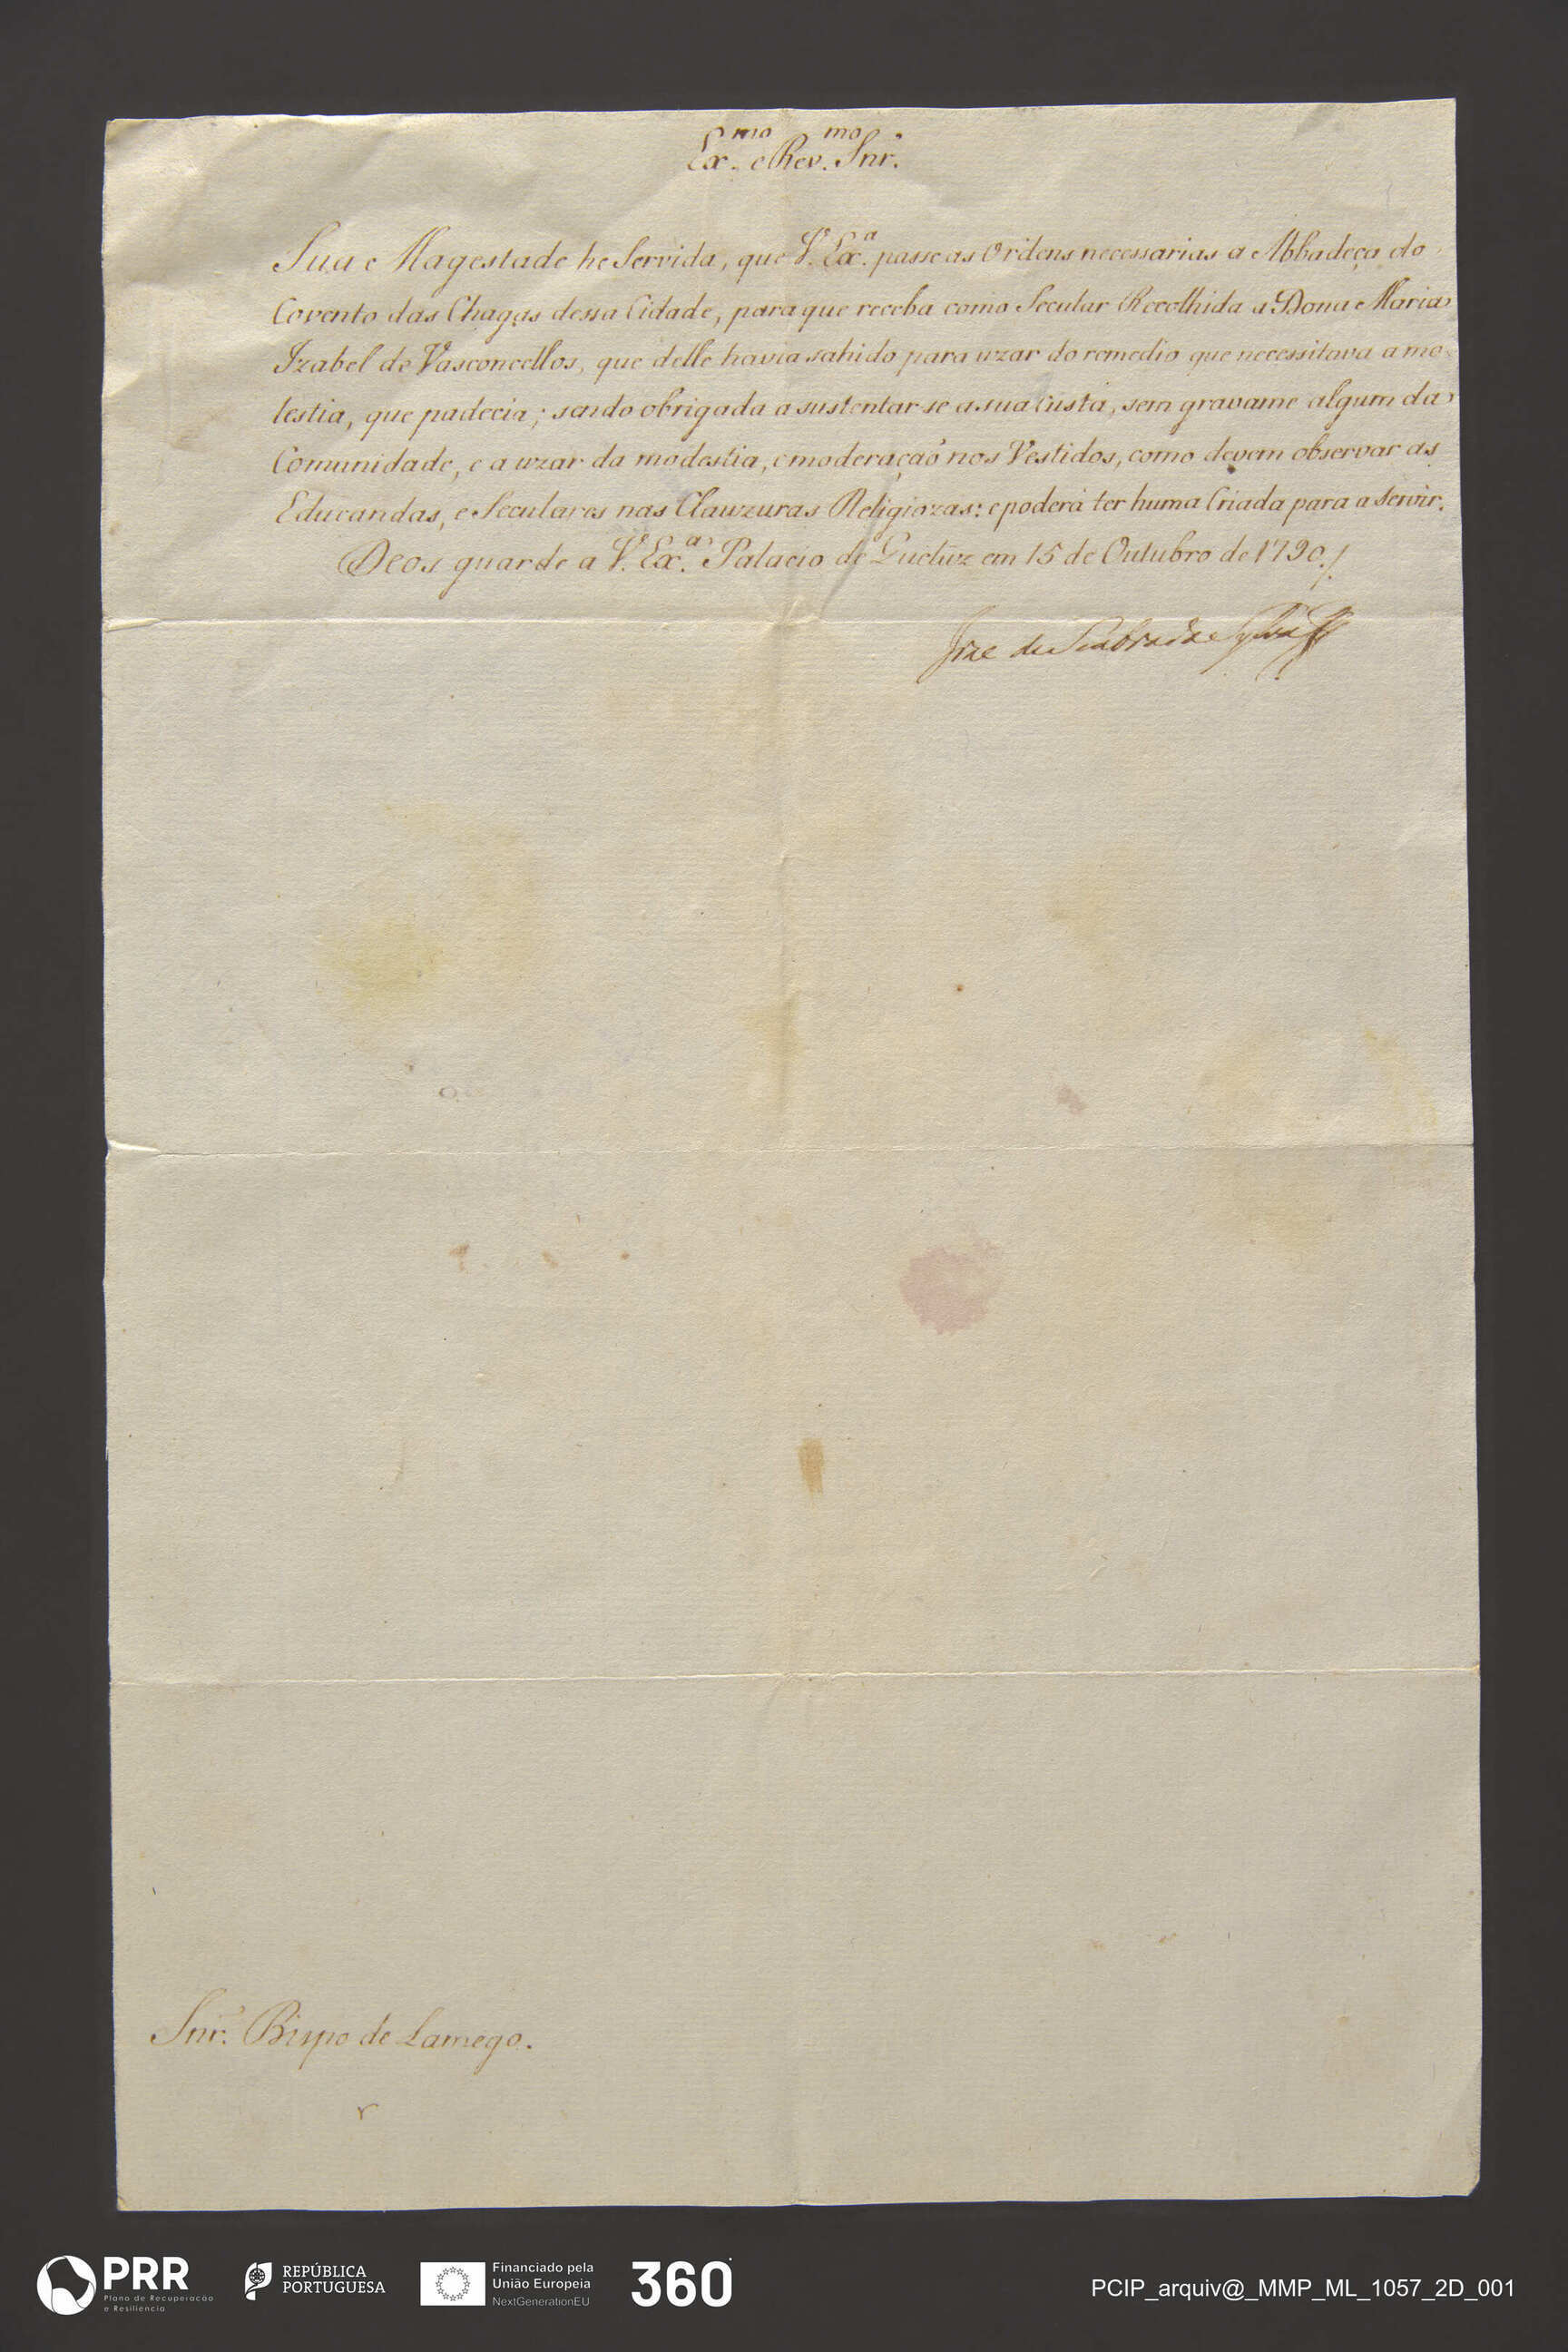 Ex.mo e Rev.mo Snr.
Sua Magestade he Servida, que V. Ex.a passe as Ordens necessarias a Abbadeça do
Covento das Chagas dessa Cidade, para que receba como Secular Recolhida a Dona Maria
Izabel de Vasconcellos, que delle havia sahido para uzar do remedio que necessitava a mo-
lestia, que padecia; sendo obrigada a sustentar se a sua custa, sem gravame algum da
Comunidade, e a uzar da modestia, e moderaçaõ nos Vestidos, como devem observar as
Educandas, e Seculares nas Clauzuras Religiozas: e poderá ter huma Criada para a servir.
Deos guarde a V. Ex.a Palacio de Queluz em 15 de Outubro de 1790./
Joze de Seabra da Sylva
Snr. Bispo de Lamego.
PRR
Plano de Recuperação
e Resiliência
REPÚBLICA
PORTUGUESA
Financiado pela
União Europeia
NextGenerationEU
360
PCIP_arquiv@_MMP_ML_1057_2D_001